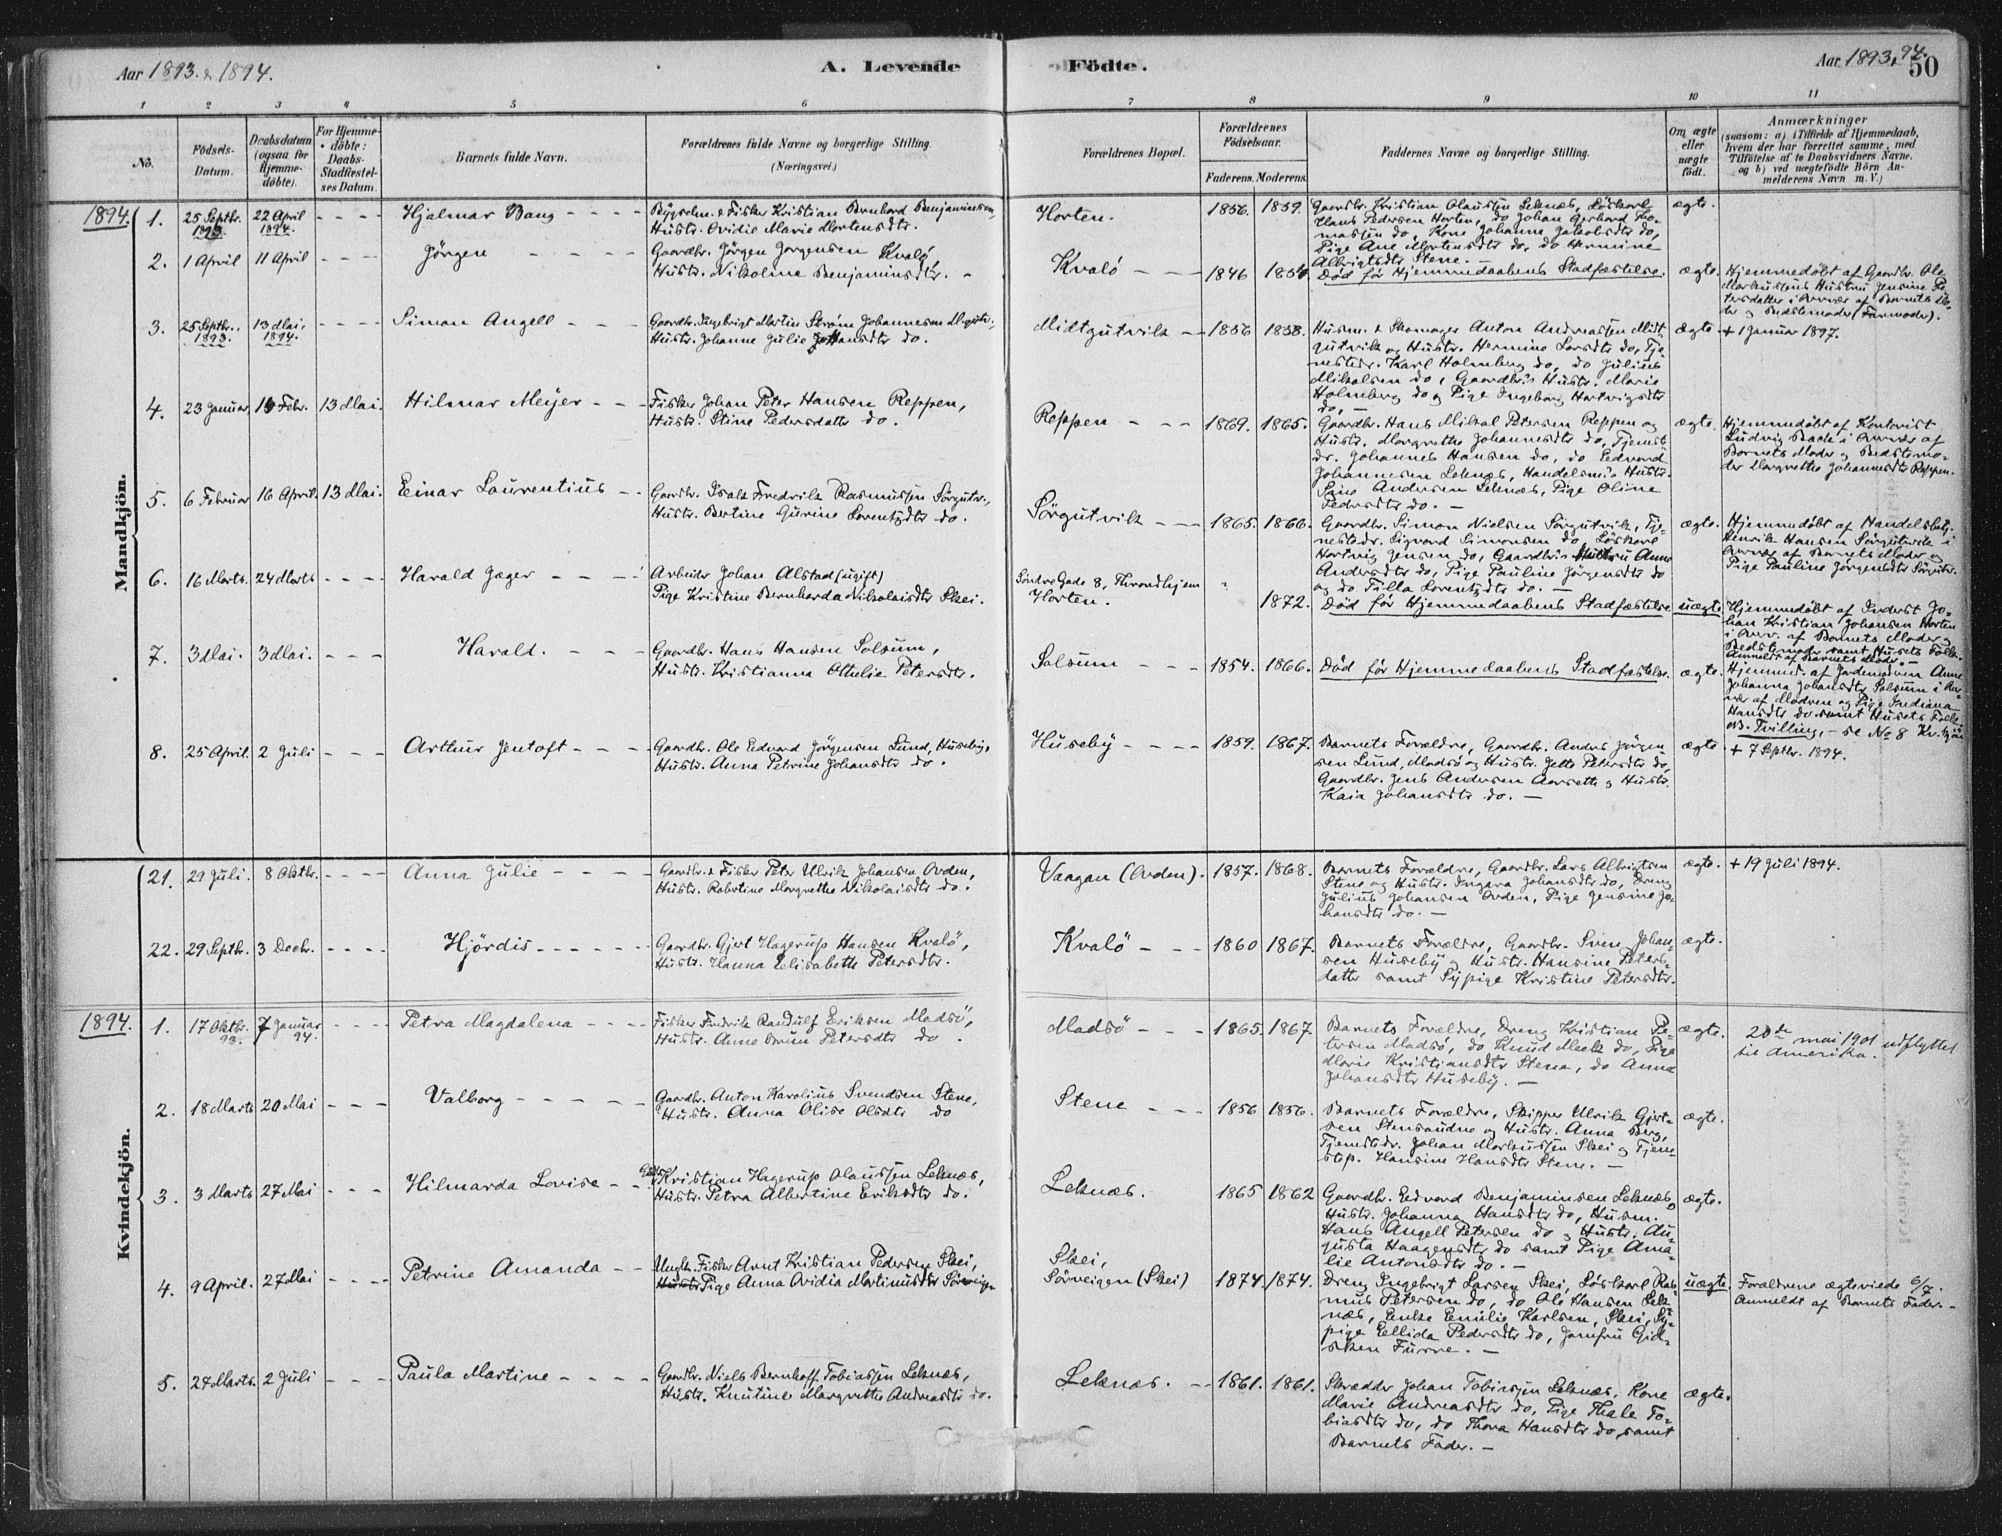 Aar 1893 & 1894.
A. Levende Födte.
Aar 1893, 94.
50
1 2 3 4 5 6 7 8 9 10 11
No.
Födsels-Datum.
Daabsdatum (ogsaa för Hjemme-döbte).
For Hjemme-döbte: Daabs-Stadfæstel-ses Datum.
Barnets fulde Navn.
Forældrenes fulde Navne og borgerlige Stilling.
(Næringsvei.)
Forældrenes Bopæl.
Forældrenes Födselsaar.
Faderens. Moderens.
Faddernes Navne og borgerlige Stilling.
Om ægte eller uægte födt.
Anmærkninger
(saasom: a) i Tilfælde af Hjemmedaab,
hvem der har forrettet samme, med
Tilföielse af to Daabsvidners Navne.
og b) ved uægtefödte Börn An-
melderens Navn m. V.)
Mandkjön.
1894.
1. 25 Septbr. 1893. 22 April 1894. Hjalmar Bang
Bygselm. & Fisker Kristian Bernhard Benjaminsen,
Hustr. Ovidie Marie Mortensdtr.
Horten. 1856. 1859.
Gaardbr. Kristian Olaussen Leknæs, Löskarl
Hans Pedersen Horten, do Johan Gerhard Tho-
massen do, Kone Johanna Jakobsdtr do,
Pige Ane Mortensdtr do, do Hermine
Albrigtsdtr Stene. —
ægte.
2. 1 April 11 April Jörgen
Gaardbr. Jörgen Jorgensen Kvalö,
Hustr. Nikoline Benjaminsdtr.
Kvalö 1846 1854.
Död för Hjemmedaabens Stadfæstelse.
ægte.
Hjemmedöbt af Gaardbr. Ole
Markussens Hustru Jensine Pe-
tersdatter i Nærvær af Barnets Mo-
der og Bedstemoder (Farmoder).
3. 25 Septbr. 1893. 13 Mai 1894. Simon Angell
Gaardbr. Ingebrigt Martin Ström Johannesen Midgutv.,
Hustr. Johanne Julie Johansdtr do.
Midtgutvik 1856 1858.
Husm. & Skomager Anton Andreassen Midt-
gutvik og Hustr. Hermine Larsdtr do, Tje-
nestedr. Karl Holmberg do, do Julius
Mikalsen do, Gaardbr's Hustr. Marie
Holmberg do og Pige Ingeborg Hartvigsdtr
do. —
ægte.
+ 1 Januar 1897.
4. 23 Januar 14 Febr. 13 Mai. Hilmar Meyer
Fisker Johan Peter Hansen Reppen,
Hustr. Stine Pedersdatter do.
Reppen 1869. 1865.
Gaardbr. Hans Mikal Petersen Reppen og
Hustr. Margrethe Johannesdtr do, Tjenest-
dr. Johannes Hansen do, do Edvard
Johannesen Leknæs, Handelsm's Hustr.
Sine Andersen Leknæs, Pige Oline
Pedersdtr do. —
ægte.
Hjemmedöbt af Kontorist
Ludvig Baade i Nærvær af
Barnets Moder og Bedstemo-
der Margrethe Johannesdtr Reppen.
5. 6 Februar 16 April 13 Mai. Einar Laurentius
Gaardbr. Isak Fredrik Rasmussen Sörgutv.,
Hustr. Bertine Gurine Lorentzdtr do.
Sörgutvik 1865. 1866.
Gaardbr. Simon Nielsen Sörgutvik, Tje-
nestedr. Sigvard Simonsen do, Löskarl
Hartvig Jensen do, Gaardbr's Hustru Anna
Andersdtr do, Pige Pauline Jörgensdtr do
og do Tilla Lorentzdtr do. —
ægte.
Hjemmedöbt af Handelsbetj.
Henrik Hansen Sörgutvik i
Nærvær af Barnets Moder og
Pige Pauline Jörgensdtr Sörgutv.
6. 16 Marts 24 Marts Harald Jæger
Arbeider Johan Alstad (ugift)
Pige Kristine Bernharda Nikolaisdtr Skei.
Söndre Gade 8, Throndhjem
Horten. " 1872.
Död för Hjemmedaabens Stadfæstelse
uægte
Hjemmedöbt af Inderst Jo-
han Kristian Johansen Horten
i Nærv. af Barnets Moder og
Bedstemoder samt Husets Folk.
Anmeldt af Barnets Moder. —
7. 3 Mai. 3 Mai. Harald.
Gaardbr. Hans Hansen Solsum,
Hustr. Kristianna Othelie Petersdtr.
Solsum 1854. 1866.
Död för Hjemmedaabens Stadfæstelse.
ægte.
Hjemmed. af Jordemoderen Anne
Johanna Johansdtr Solsum i Nær-
vær af Modren og Pige Indiana
Hansdtr do samt Husets Folk.
OBS. Tvilling, — se No 8 Kv.kjön
8. 25 April. 2 Juli Arthur Jentoft
Gaardbr. Ole Edvard Jörgensen Lund, Huseby,
Hustr. Anna Petrine Johansdtr do.
Huseby 1859. 1867.
Barnets Forældre, Gaardbr. Anders Jörgen-
sen Lund, Madsö og Hustr. Jette Petersdtr do,
Gaardbr. Jens Andersen Aarsette og Hustr.
Kaia Johansdtr do. —
ægte
+ 7 Septbr. 1894.
Kvindekjön.
21. 29 Juli. 8 Oktbr. Anna Julie
Gaardbr. & Fisker Peter Ulrik Johansen Orden,
Hustr. Robertine Margrethe Nikolaisdtr do.
Vaagan (Orden). 1857. 1868.
Barnets Forældre, Gaardbr. Lars Albrigtsen
Stene og Hustr. Ingara Johansdtr do, Dreng
Julius Johansen Orden, Pige Jensine Jo-
hansdtr do. —
ægte.
+ 19 Juli 1894.
22. 29 Septbr. 3 Decbr. Hjördis
Gaardbr. Gjert Hagerup Hansen Kvalö,
Hustr. Hanna Elisabeth Petersdtr.
Kvalö 1860 1867.
Barnets Forældre, Gaardbr. Sven Johan-
sen Huseby og Hustr. Hansine Peters-
datter samt Sypige Kristine Petersdtr.
ægte.
1894.
1. 17 Oktbr. 93. 7 Januar 94. Petra Magdalena
Fisker Fredrik Randulf Eriksen Madsö,
Hustr. Anne Petersdtr do.
Madsö 1865. 1867.
Barnets Forældre, Dreng Kristian Pe-
tersen Madsö, do Knud Meek do, Pige
Marie Kristiansdtr Stene, do Anna
Johansdtr Huseby. —
ægte.
20de mai 1901 udflyttet
til Amerika.
2. 18 Marts 20 Mai Valborg
Gaardbr. Anton Karolius Svendsen Stene,
Hustr. Anna Olise Olsdtr do
Stene 1856 1856.
Barnets Forældre, Skipper Ulrik Gjert-
sen Stensaudne og Hustr. Anna Berg,
Tjenestdr. Johan Markussen Skei og Tjene-
step. Hansine Hansdtr Stene. —
ægte.
3. 3 Marts 27 Mai Hilmarda Lovise
Gbr. Kristian Hagerup Olaussen Leknæs,
Hustr. Petra Albertine Eriksdtr do.
Leknæs. 1865 1862
Gaardbr. Edvard Benjaminsen Leknæs,
Hustr. Johanna Hansdtr do, Husm.
Hans Angell Petersen do og Hustr. Au-
gusta Haagensdtr do samt Pige Ama-
lie Antonsdtr do. —
ægte.
4. 9 April. 27 Mai Petrine Amanda
Ungk. Fisker Arnt Kristian Pedersen Skei,
Hustr. Pige Anna Ovidia Martinusdtr Sörveigen
Skei,
Sörveigen (Skei) 1874. 1874.
Dreng Ingebrigt Larsen Skei, Löskarl Ras-
mus Petersen do, do Ole Hansen Lek-
næs, Enke Emilie Karlsen, Skei, Sy-
pige Ellida Pedersdtr do, Jomfru Gid-
sken Furre. —
uægte.
Forældrene ægteviede 6/7.
Anmeldt af Barnets Fader. —
5. 24 Marts. 2 Juli Paula Martine
Gaardbr. Niels Bernhoff Tobiassen Leknæs,
Hustr. Knutine Margrethe Andreasdtr do.
Leknæs. 1861. 1861.
Skrædder Johan Tobiassen Leknæs, Kone
Marie Andreasdtr do, Pige Thale To-
biasdtr do, do Thora Hansdtr do, samt
Barnets Fader. —
ægte.